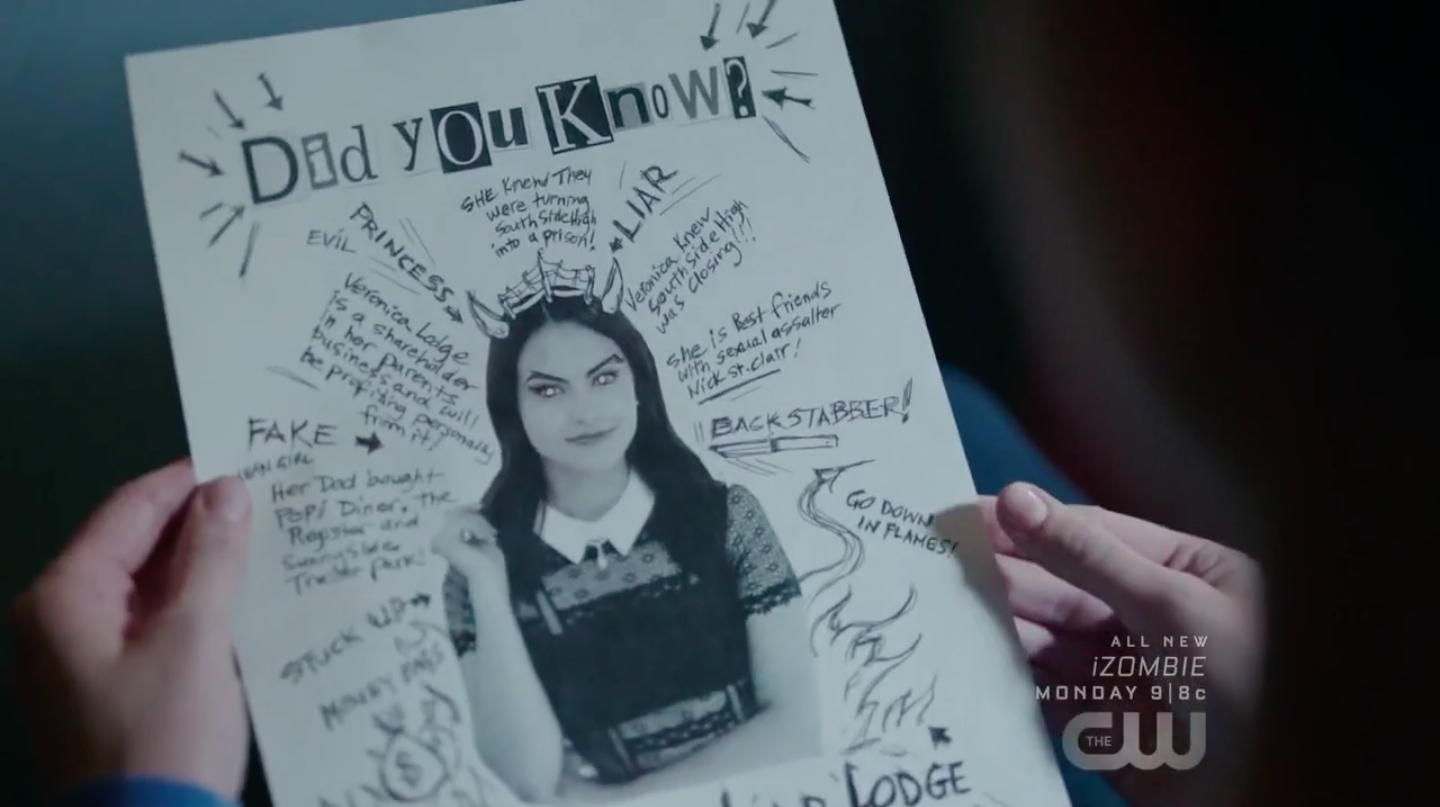 Did you Know?
SHE Knew They
were turning
South Side High
into a prison!
LIAR
EVIL
PRINCESS
Veronica Knew
South Side High
was closing!!!
Veronica Lodge
is a shareholder
in her parents
business and will
be profiting personally
from it!
she is Best friends
with sexual assalter
Nick St. Clair!
FAKE
BACKSTABBER!
Her Dad bought
POP's Diner, the
Register and
Sunnyside
Trailer Park!
GO DOWN
IN FLAMES!
STUCK UP
MONEY BAGS
$
LODGE
ALL NEW
iZOMBIE
MONDAY 9|8c
THE CW